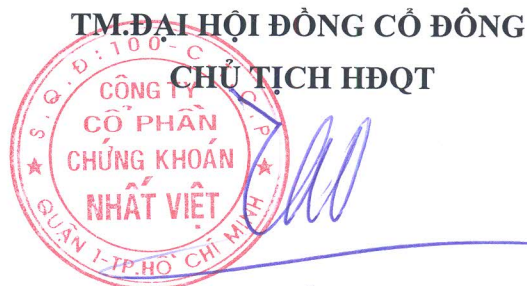 TM.ĐẠI HỘI ĐỒNG CỔ ĐÔNG
CHỦ TỊCH HĐQT
S.Q.Đ:100-C.T.C.P
CÔNG TY
CỔ PHẦN
CHỨNG KHOÁN
NHẤT VIỆT
QUẬN 1-TP.HỒ CHÍ MINH